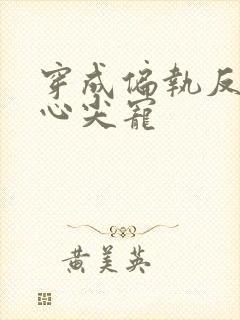 穿成偏執反
心尖寵
黃美英